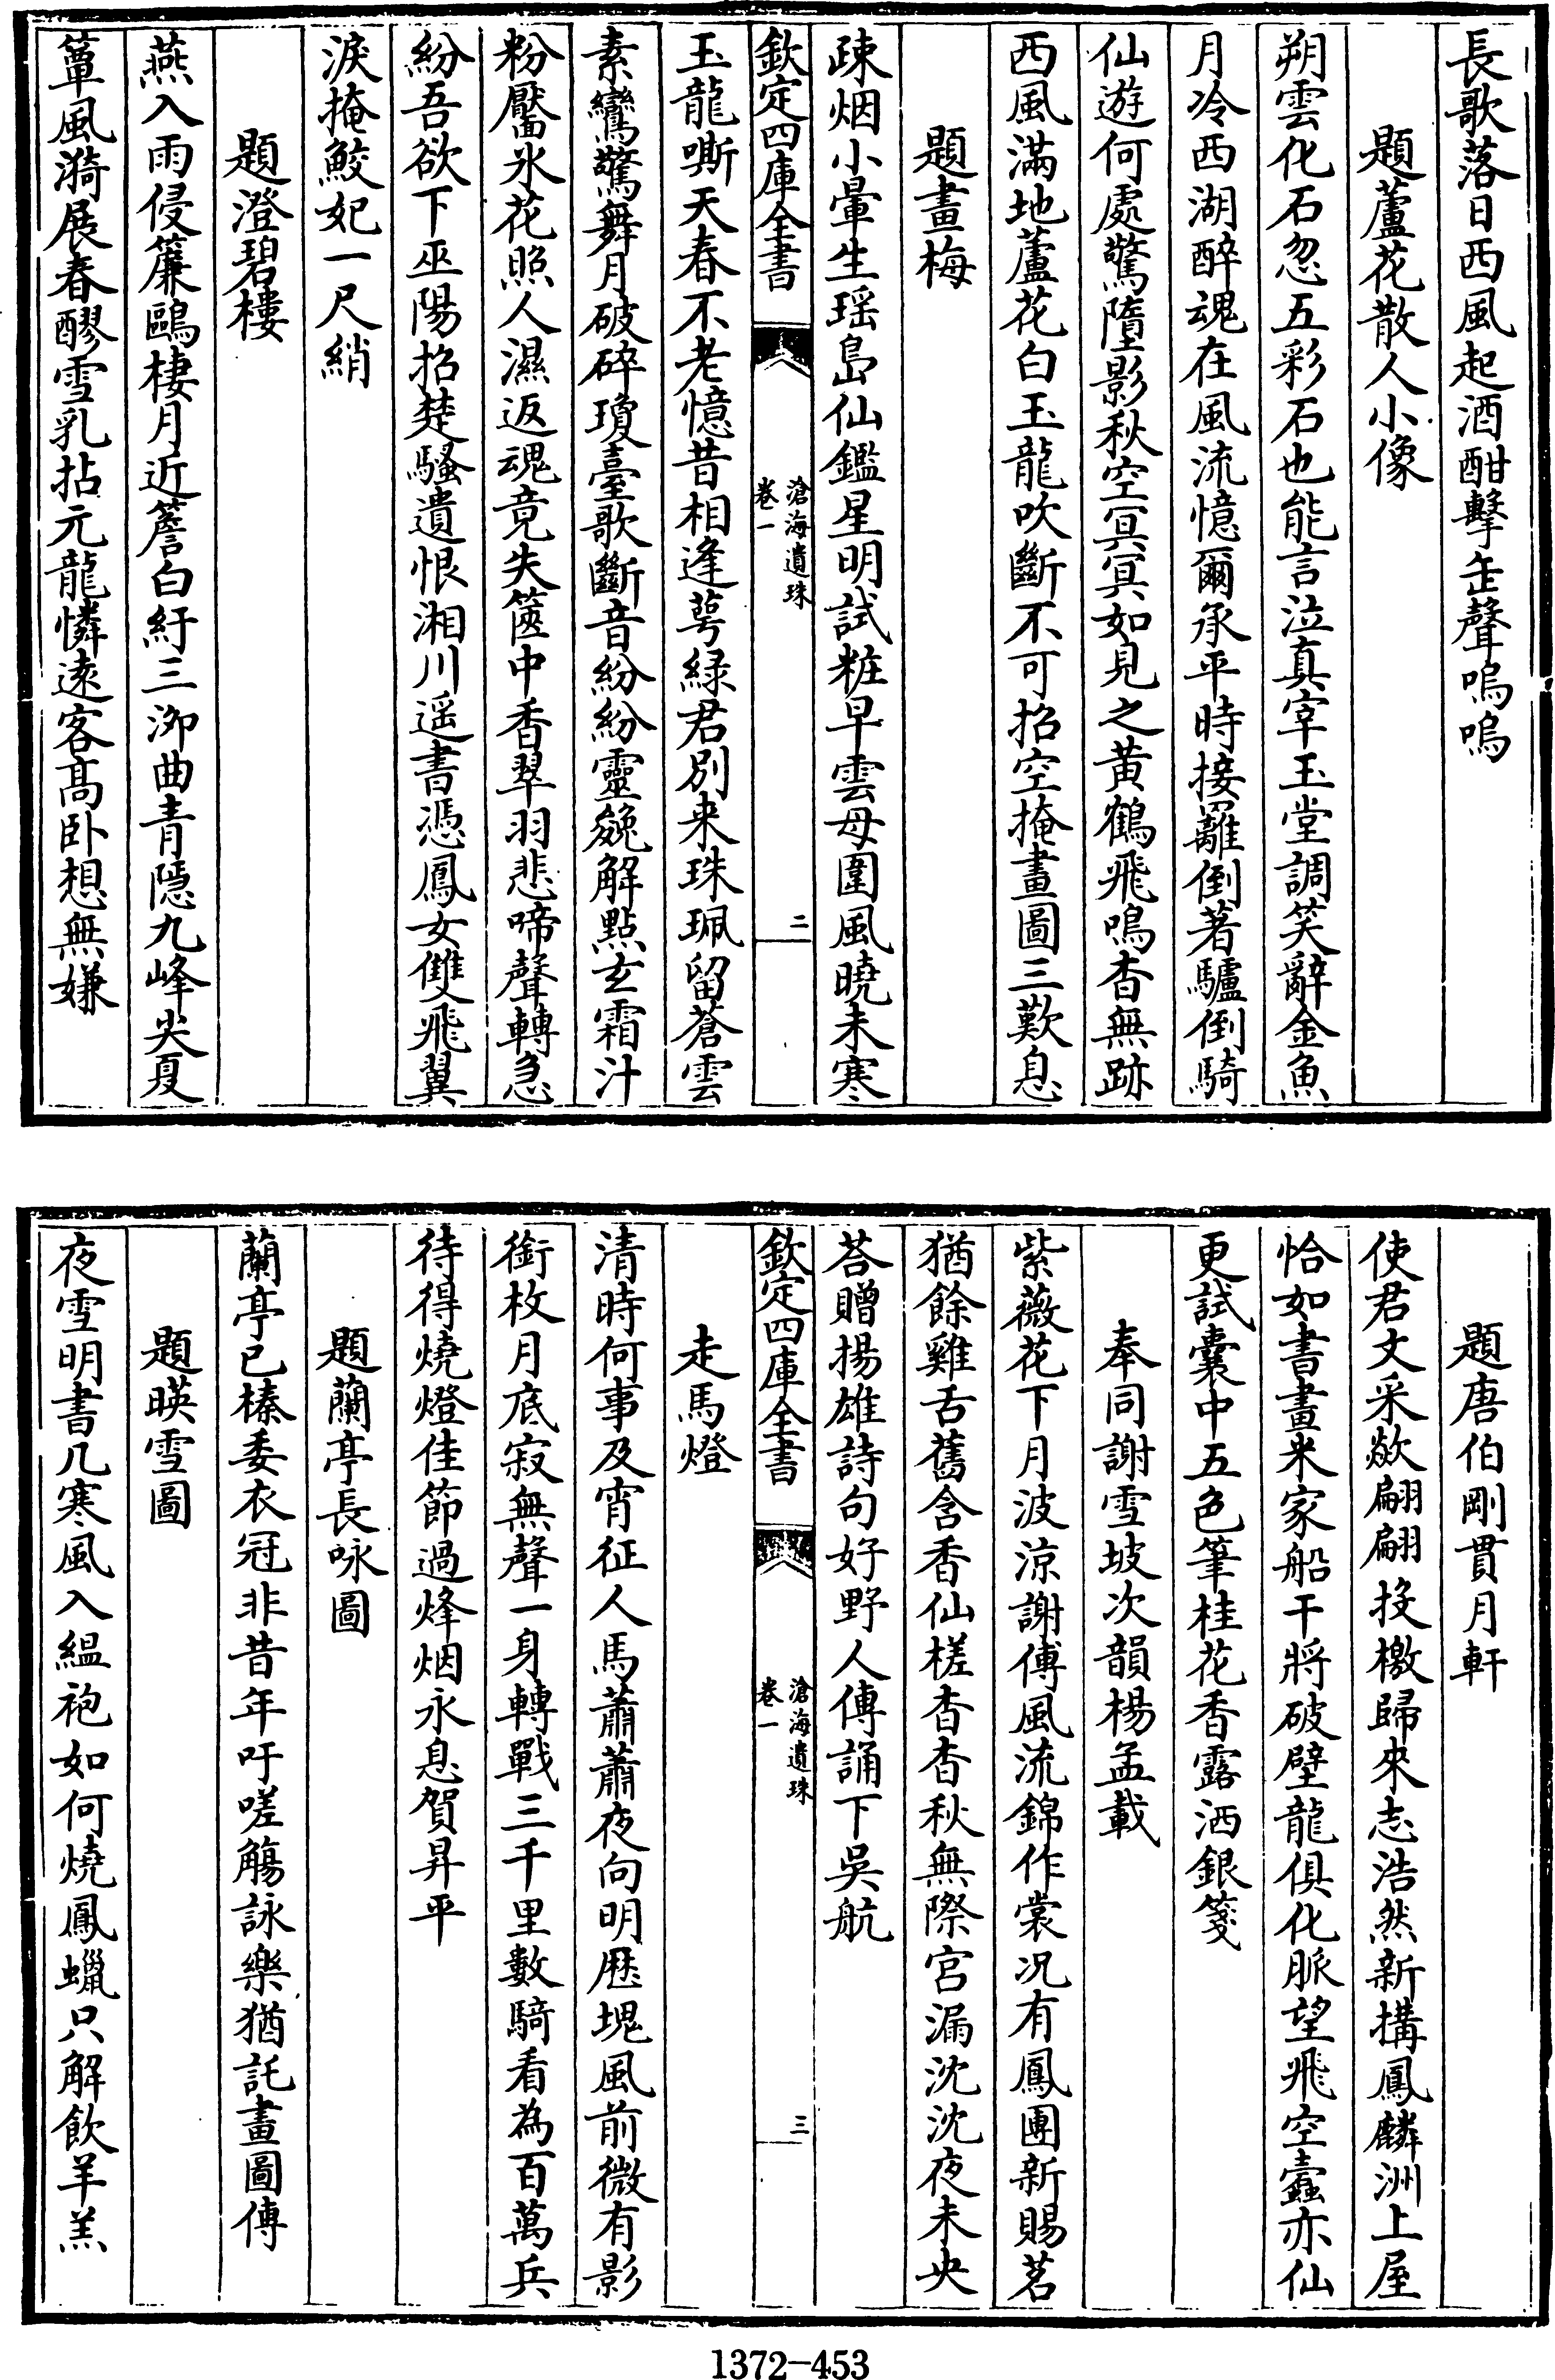 長歌落日西風起酒酣擊缶聲嗚嗚
題蘆花散人小像
朔雲化石忽五彩石也能言泣真宰玉堂調笑辭金魚
月冷西湖醉魂在風流憶爾承平時接䍦倒著驢倒騎
仙遊何處驚墮影秋空冥冥如見之黄鶴飛鳴杳無跡
西風滿地蘆花白玉龍吹斷不可招空掩畫圖三歎息
題畫梅
疎烟小暈生瑶島仙鑑星明試粧早雲母圍風曉未寒
欽定四庫全書
滄海遺珠
卷一
二
玉龍嘶天春不老憶昔相逢萼緑君别来珠珮留蒼雲
素鸞驚舞月破碎瓊臺歌斷音紛紛靈䰟解點玄霜汁
粉靨氷花照人濕返魂竟失篋中香翠羽悲啼聲轉急
紛吾欲下巫陽招楚騷遺恨湘川遥書憑鳳女雙飛翼
淚掩鮫妃一尺綃
題澄碧樓
燕入雨侵簾鷗棲月近簷白紵三泖曲青隠九峰尖夏
簟風漪展春醪雪乳拈元龍憐逺客髙卧想無嫌
題唐伯剛貫月軒
使君文采歘翩翩投檄歸來志浩然新搆鳳麟洲上屋
恰如書畫米家船干將破壁龍俱化脈望飛空蠧亦仙
更試囊中五色筆桂花香露洒銀箋
奉同謝雪坡次韻楊孟載
紫薇花下月波涼謝傅風流錦作裳况有鳳團新賜茗
猶餘雞舌舊含香仙槎杳杳秋無際宫漏沈沈夜未央
荅贈揚雄詩句好野人傳誦下吳航
欽定四庫全書
滄海遺珠
卷一
三
走馬燈
清時何事及宵征人馬蕭蕭夜向明厯塊風前微有影
銜枚月底寂無聲一身轉戰三千里數騎看為百萬兵
待得燒燈佳節過烽烟永息賀昇平
題蘭亭長咏圖
蘭亭已榛委衣冠非昔年吁嗟觴詠樂猶託畫圖傳
題暎雪圖
夜雪明書几寒風入緼袍如何燒鳳蠟只解飲羊羔
1372-453